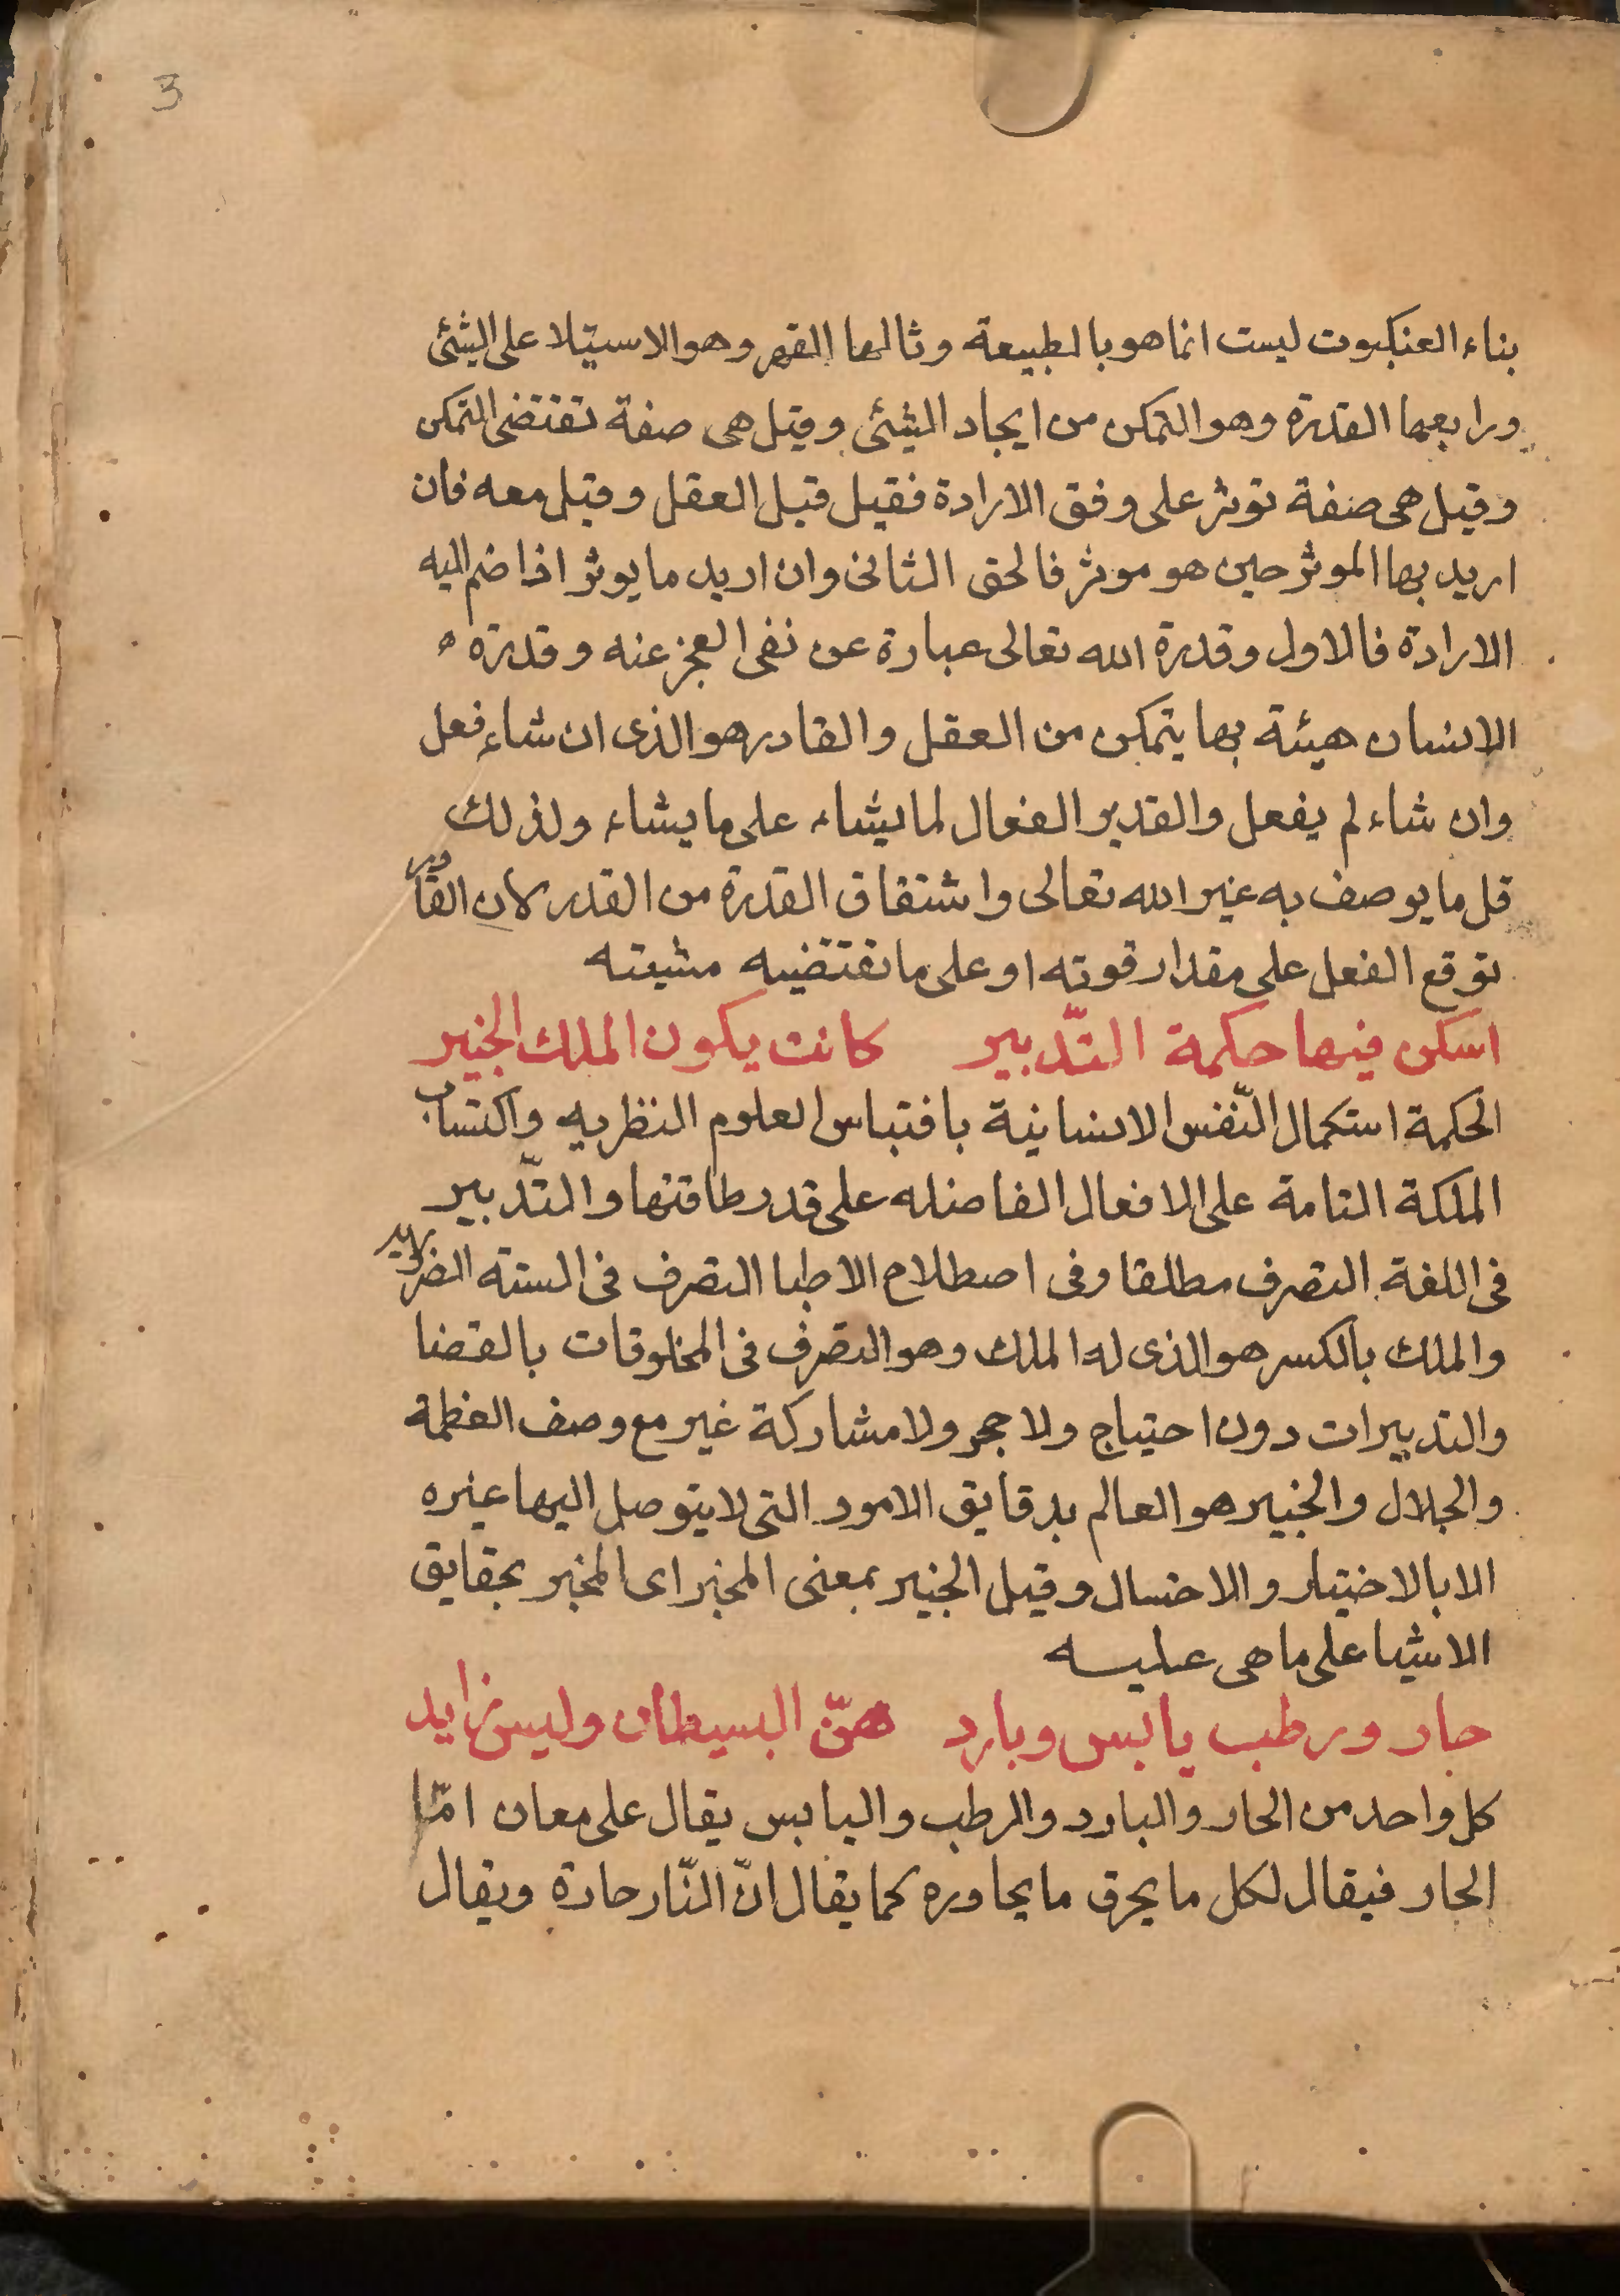 3
بناء العنكبوت ليست انما هو بالطبيعة وثالثها القهر وهو الاستيلا على الشئ
ورابعها القدرة وهو التمكن من ايجاد الشئ وقيل هى صفة تقتضى التمكن
وقيل هى صفة توثر على وفق الارادة فقيل قبل العقل وقيل معه فان
اريد بها الموثر حين هو موثر فالحق الثانى وان اريد ما يوثر اذا ضم اليه
الارادة فالاول وقدرة الله تعالى عبارة عن نفى العجز عنه وقدرة
الانسان هيئة بها يتمكن من العقل والقادر هو الذى ان شاء فعل
وان شاء لم يفعل والقدير الفعال لما يشاء على ما يشاء ولذلك
قل ما يوصف به غير الله تعالى واشتقاق القدرة من القدر لان القادر
توقع الفعل على مقدار قوته او على ما تقتضيه مشيته
اسكن فيها حكمة التّدبير كانت يكون الملك الخبير
الحكمة استكمال النّفس الانسانية باقتباس العلوم النظريه واكتساب
الملكة التامة على الافعال الفاضله على قدر طاقتها والتّدبير
فى اللغة التصرف مطلقا وفى اصطلاح الاطبا التصرف فى السته الضروريه
والملك بالكسر هو الذى له الملك وهو التصرف فى المخلوقات بالقضا
والتدبيرات دون احتياج ولا حجر ولا مشاركة غير مع وصف العظمة
والجلال والخبير هو العالم بدقايق الامور التى لا يتوصل اليها غيره
الا بالاختيار والاحتسال وقيل الخبير بمعنى المخبر اى المخبر بحقايق
الاشيا على ما هى عليه
حار ورطب يابس وبارد همّ البسيطان وليس زايد
كل واحد من الحار والبارد والرطب واليابس يقال على معان امّا
الحار فيقال لكل ما يحرق ما يجاوره كما يقال انّ النّار حارة ويقال